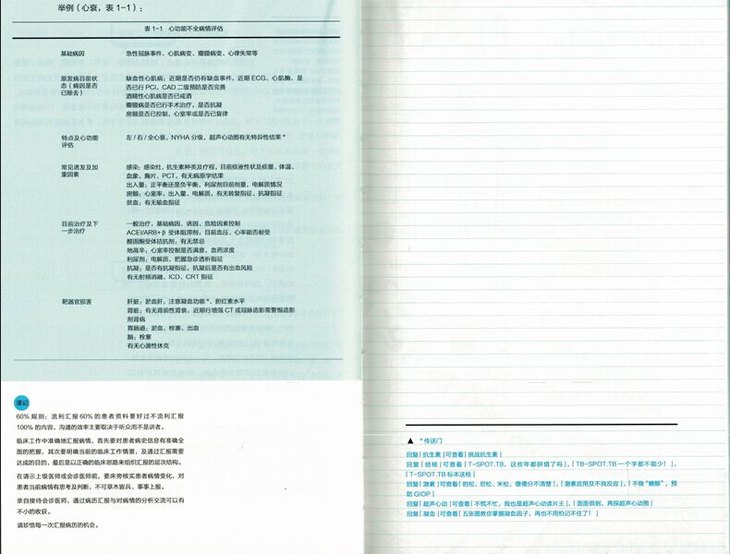 举例（心衰，表 1-1）：
表 1-1　心功能不全病情评估
基础病因
急性冠脉事件、心肌病变、瓣膜病变、心律失常等
原发病目前状
态（病因是否
已除去）
缺血性心肌病：近期是否仍有缺血事件，近期 ECG、心肌酶，是
否已行 PCI，CAD 二级预防是否完善
酒精性心肌病是否已戒酒
瓣膜病是否已行手术治疗，是否抗凝
房颤是否已控制，心室率或是否已复律
特点及心功能
评估
左 / 右 / 全心衰，NYHA 分级，超声心动图有无特异性结果 *
常见诱发及加
重因素
感染：感染灶，抗生素种类及疗程，目前痰液性状及痰量、体温、
血象、胸片、PCT，有无病原学结果
出入量，正平衡还是负平衡，利尿剂目前剂量，电解质情况
房颤：心室率、出入量、电解质，有无转复指征、抗凝指征
贫血：有无输血指征
目前治疗及下
一步治疗
一般治疗，基础病因、诱因、危险因素控制
ACEI/ARB+ β 受体阻滞剂：目前血压、心率能否耐受
醛固酮受体拮抗剂：有无禁忌
地高辛：心室率控制是否满意，血药浓度
利尿剂：电解质，把握急诊透析指征
抗凝：是否有抗凝指征，抗凝后是否有出血风险
有无射频消融、ICD、CRT 指征
靶器官损害
肝脏：淤血肝，注意凝血功能 *、胆红素水平
肾脏：有无肾前性肾衰，近期行增强 CT 或冠脉造影需警惕造影
剂肾病
胃肠道：淤血、栓塞、出血
脑：栓塞
有无心源性休克
60% 规则：流利汇报 60% 的患者资料要好过不流利汇报
100% 的内容。沟通的效率主要取决于听众而不是讲者。
临床工作中准确地汇报病情，首先要对患者病史信息有准确全
面的把握，其次要明确当前的临床工作情景，及通过汇报需要
达成的目的，最后是以正确的临床思路来组织汇报的层次结构。
在请示上级医师或会诊医师前，要床旁核实患者病情变化，对
患者当前病情有思考及判断，不可草木皆兵、事事上报。
亲自接待会诊医师，通过病历汇报与对病情的分析交流可以有
不小的收获。
请珍惜每一次汇报病历的机会。
▲ * 传送门
回复「抗生素」可查看「挑战抗生素」
回复「结核」可查看「T-SPOT.TB，这些年都拼错了吗」，「TB-SPOT.TB 一个字都不能少！」，
「T-SPOT.TB 标本送检」
回复「激素」可查看「的松，尼松，米松，傻傻分不清楚」，「激素应用及不良反应」，「不做“糖酥”，预
防 GIOP」
回复「超声心动」可查看「不慌不忙，我也是超声心动读片王」，「面面俱到，再探超声心动图」
回复「凝血」可查看「五张图教你掌握凝血因子，再也不用怕记不住了！」